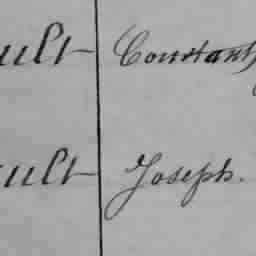 ult Constant
ult Joseph.